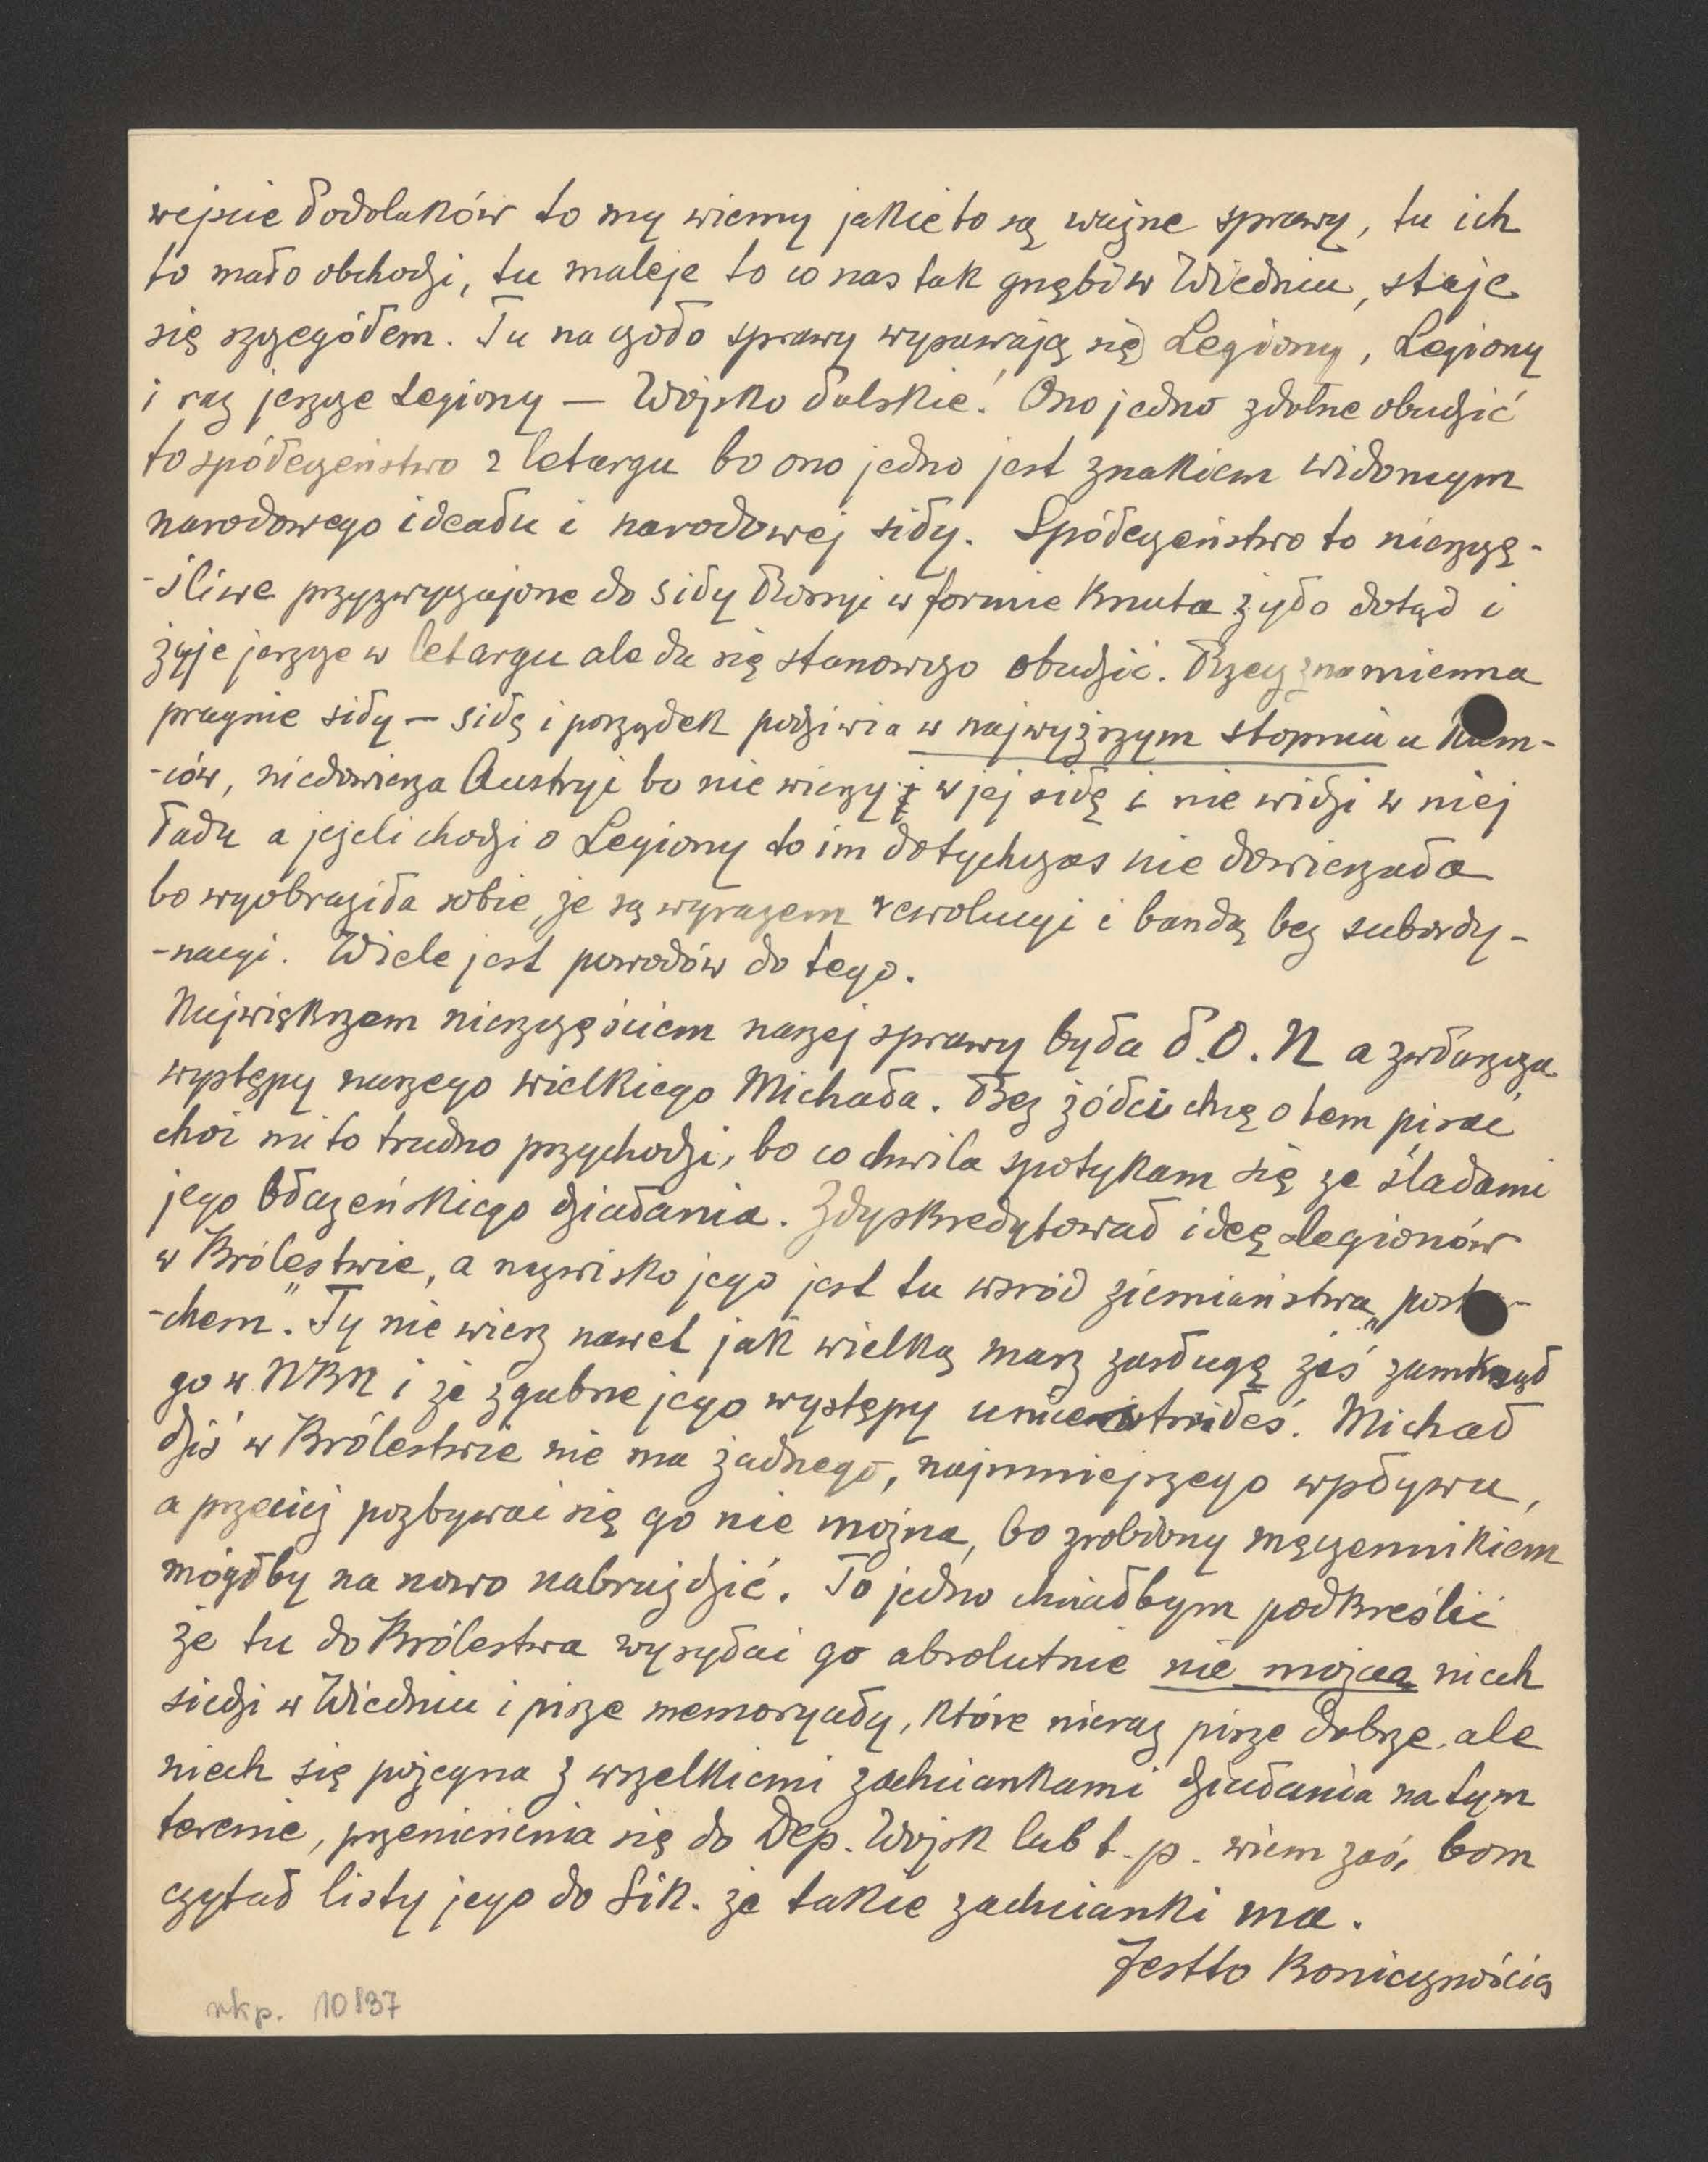 wejście Podolaków to my wiemy jakie to są ważne sprawy, tu ich
to mało obchodzi, tu maleje to co nas tak gnębi w Wiedniu, staje
się szczegółem. Tu na czoło sprawy wysuwają się Legiony, Legiony
i raz jeszcze Legiony — Wojsko Polskie! Ono jedno zdolne obudzić
to społeczeństwo z letargu bo ono jedno jest znakiem widomym
narodowego ideału i narodowej siły. Społeczeństwo to nieszczę-
-śliwe przyzwyczajone do siły Rosyi w formie knuta żyło dotąd i
żyje jeszcze w letargu ale da się stanowczo obudzić. Rzecz znamienna
pragnie siły — siłę i porządek podziwia w najwyższym stopniu u Niem-
-ców, niedowierza Austryi bo nie wierzy w jej siłę i nie widzi w niej
ładu a jeżeli chodzi o Legiony to im dotychczas nie dowierzała
bo wyobraziła sobie, że są wyrazem rewolucyi i bandą bez subordy-
-nacyi. Wiele jest powodów do tego.
Największem nieszczęściem naszej sprawy była P.O.N a zwłaszcza
występy naszego wielkiego Michała. Bez żółci chcę o tem pisać,
choć mi to trudno przychodzi, bo co chwila spotykam się ze śladami
jego błazeńskiego działania. Zdyskredytował ideę Legionów
w Królestwie, a nazwisko jego jest tu wsród ziemiaństwa „postra-
-chem". Ty nie wiesz nawet jak wielką masz zasługę żeś zamknął
go w NKN i że zgubne jego występy unicestwiłeś. Michał
dziś w Królestwie nie ma żadnego, najmniejszego wpływu,
a przecież pozbywać się go nie można, bo zrobiony męczennikiem
mógłby na nowo nabruździć. To jedno chciałbym podkreślić
że tu do Królestwa wysyłać go absolutnie nie można niech
siedzi w Wiedniu i pisze memoryały, które nieraz pisze dobrze, ale
niech się pożegna z wszelkiemi zachciankami działania na tym
terenie, przeniesienia się do Dep. Wojsk lub t. p. wiem zaś, bom
czytał listy jego do Sik. że takie zachcianki ma.
Jestto koniecznością
rkp. 10137